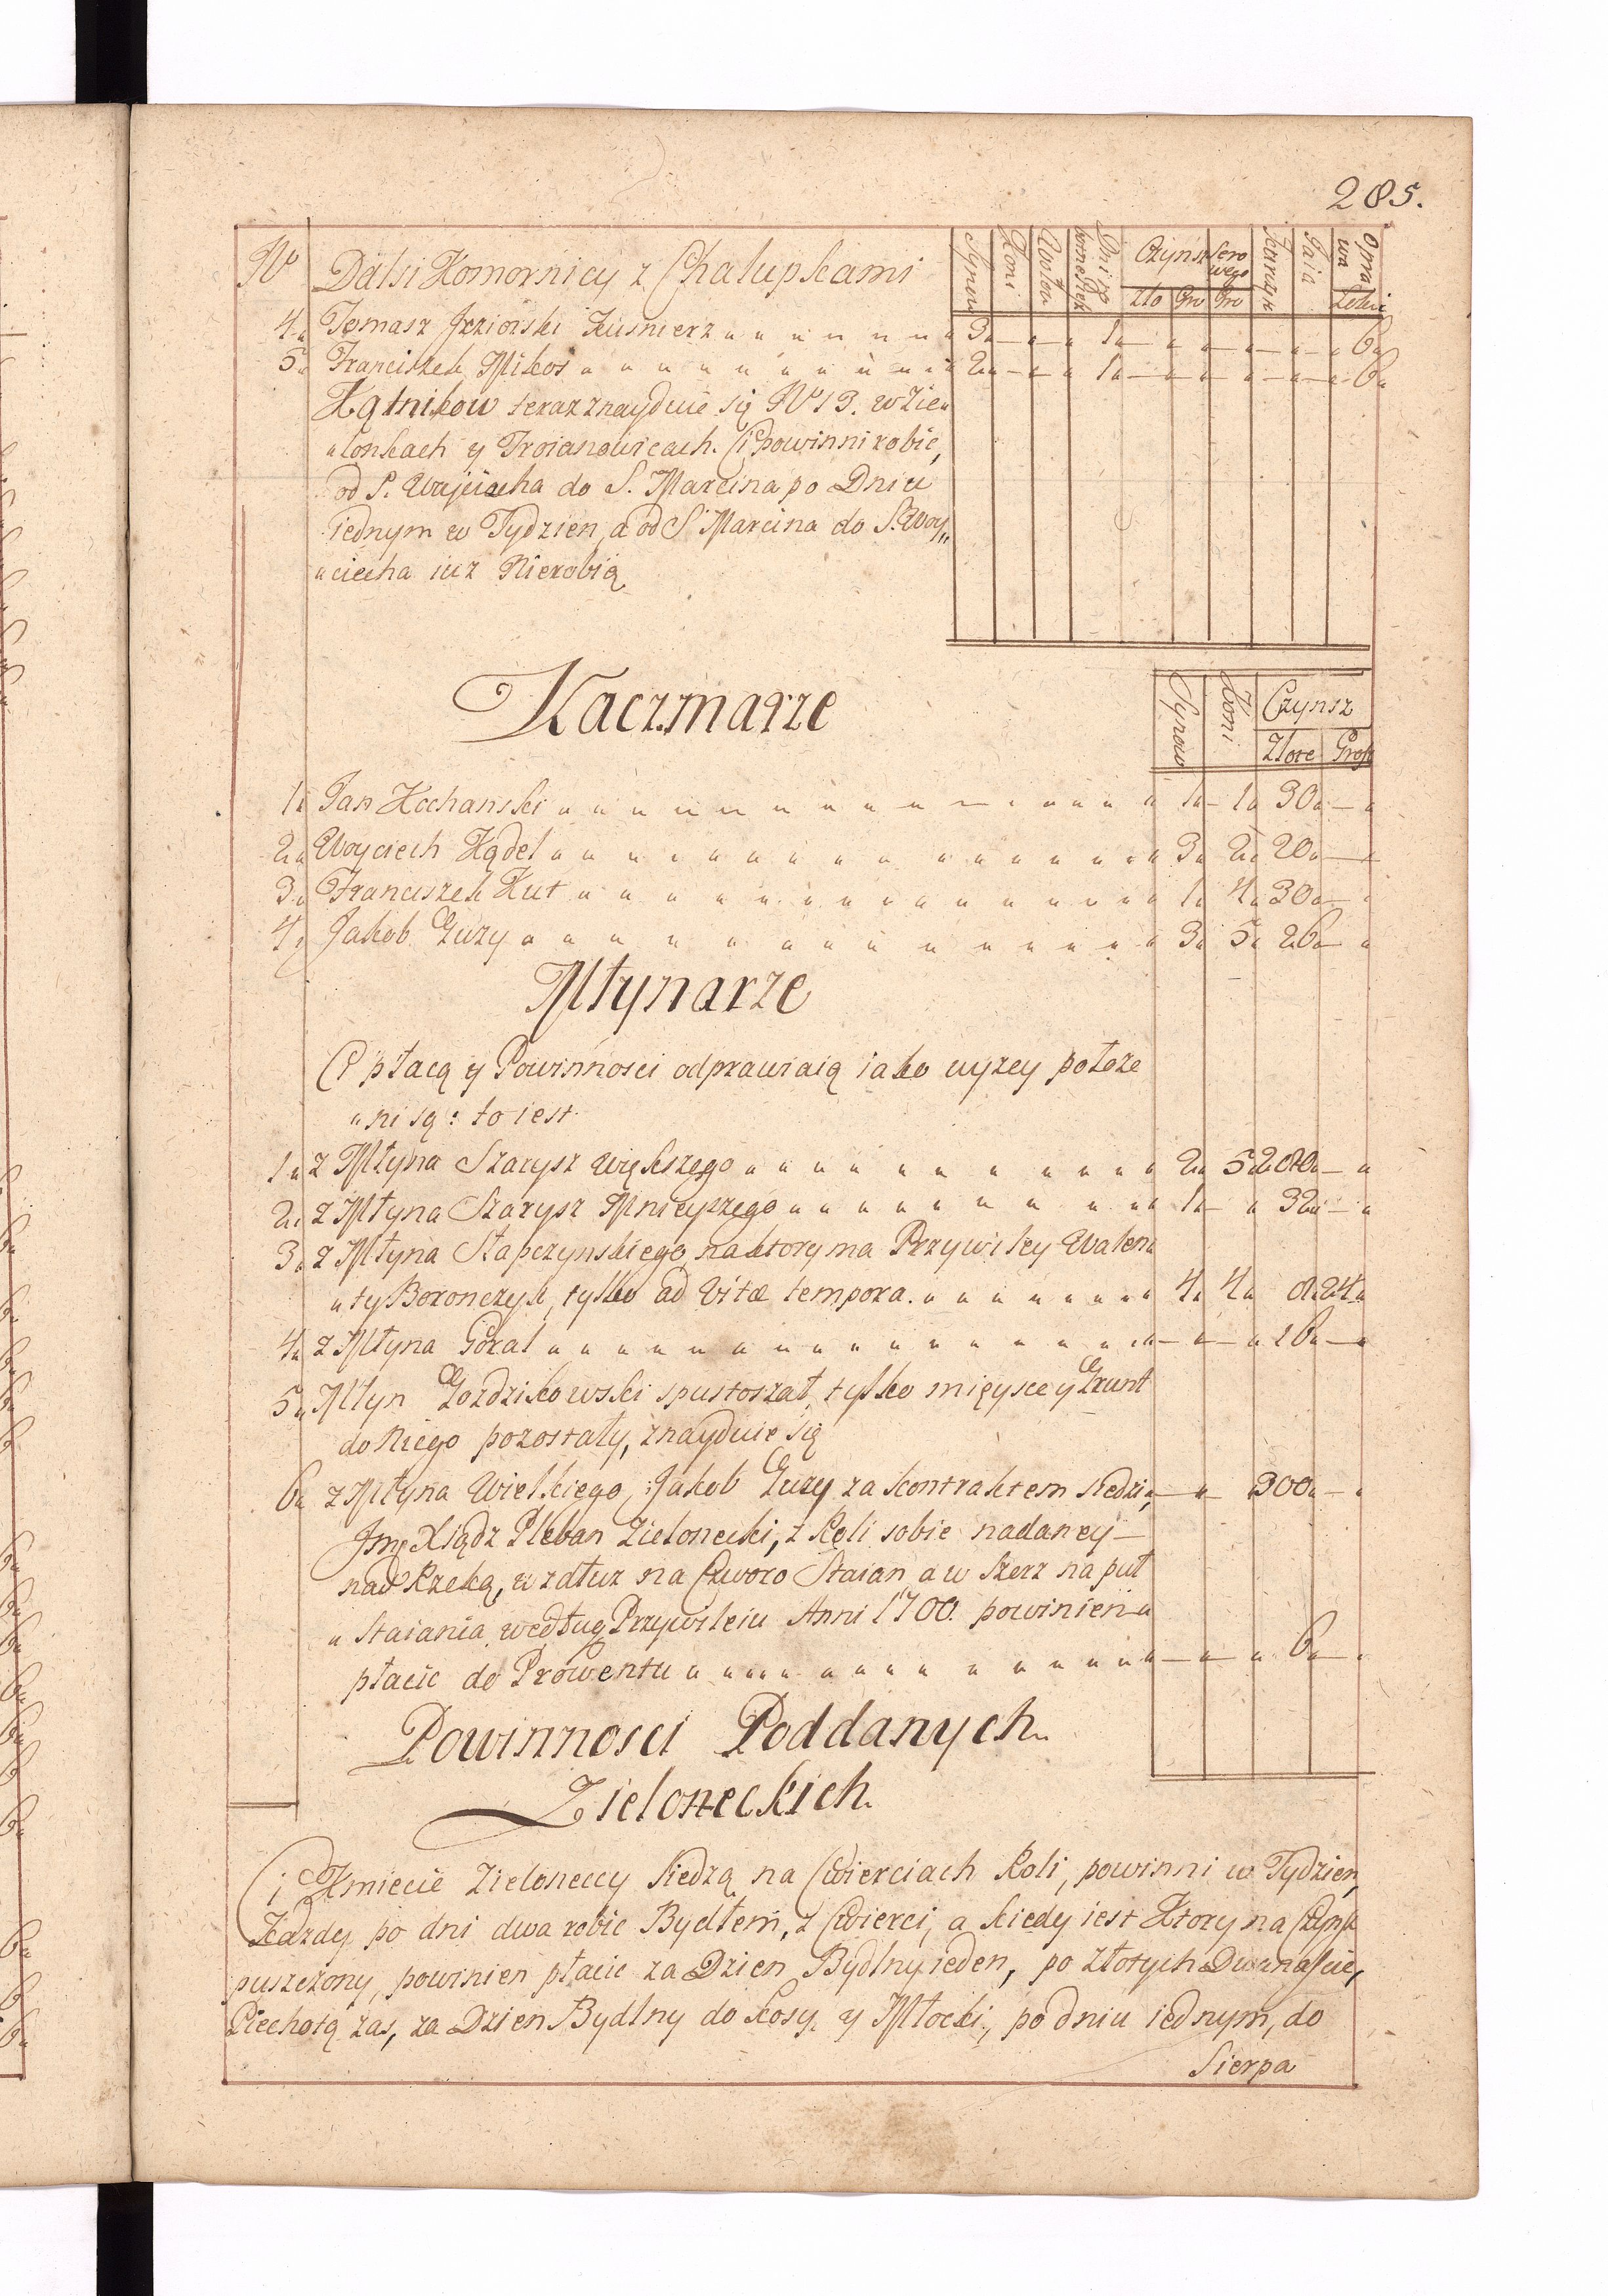 285.
No Dalsi Komornicy z Chałupkami Synow Koni Wołow Dni ro: Czynsz Sero wego Jarząb Jaia Opra wa
Zło Gro Gro Łokci
4 Tomasz Jeziorski Kusnierz 3 — 1 — 6
5 Franciszek Mikos 2 — 1 — 6
Kątnikow teraz znayduie się No 13. w Zie
lonkach y Troianowicach. Ci powinni robic,
od S. Woyciecha do S. Marcina po Dniu
iednym w Tydzien, a od S. Marcina do S. Woy„
ciecha iuz Nierobią
Kaczmarze
Synow Koni Czynsz
Złote Grosz
1 Jan Kochanski 1 1 30 —
2 Woyciech Kądel 3 2 20 —
3 Franciszek Kut 1 4 30 —
4 Jakob Guzy 3 5 26 —
Młynarze
Ci płacą y Powinnosci odprawiaią iako wyzey połoze
ni są: to iest
1 z Młyna Szarysz większego 2 5 202 —
2 z Młyna Szarysz Mnieyszego 1 — 32 —
3 z Młyna Stapczynskiego, na ktory ma Przywiley Walen
ty Boronczyk, tylko ad Vitæ tempora. 4 4 8 24
4 z Młyna Goral — — 16 —
5 Młyn Gozdzikowski spustoszał, tylko mieysce y Grunt
do Niego pozostały, znayduie się
6 z Młyna Wielkiego, Jakob Guzy za kontraktem siedzi, — 300 —
Jmę Xiądz Pleban Zielonecki, z Roli sobie nadaney —
nad Rzeką, w zdłuz na Czworo Staian a w szerz na puł
Staiania, według Przywileiu Anni 1700. powinien
płacic do Prowentu — 6 —
Powinnosci Poddanych
Zieloneckich.
Ci Kmiecie Zieloneccy siedzą na Cwierciach Roli, powinni w Tydzien,
Kazdey po dni dwa robic Bydłem, z Cwierci, a kiedy iest Ktory na Czynsz
puszczony, powinien płacic za Dzien Bydlny ieden, po Złotych Dwanascie,
Piechotą zas, za Dzien Bydlny do Kosy, y Młocki, po dniu iednym, do
Sierpa